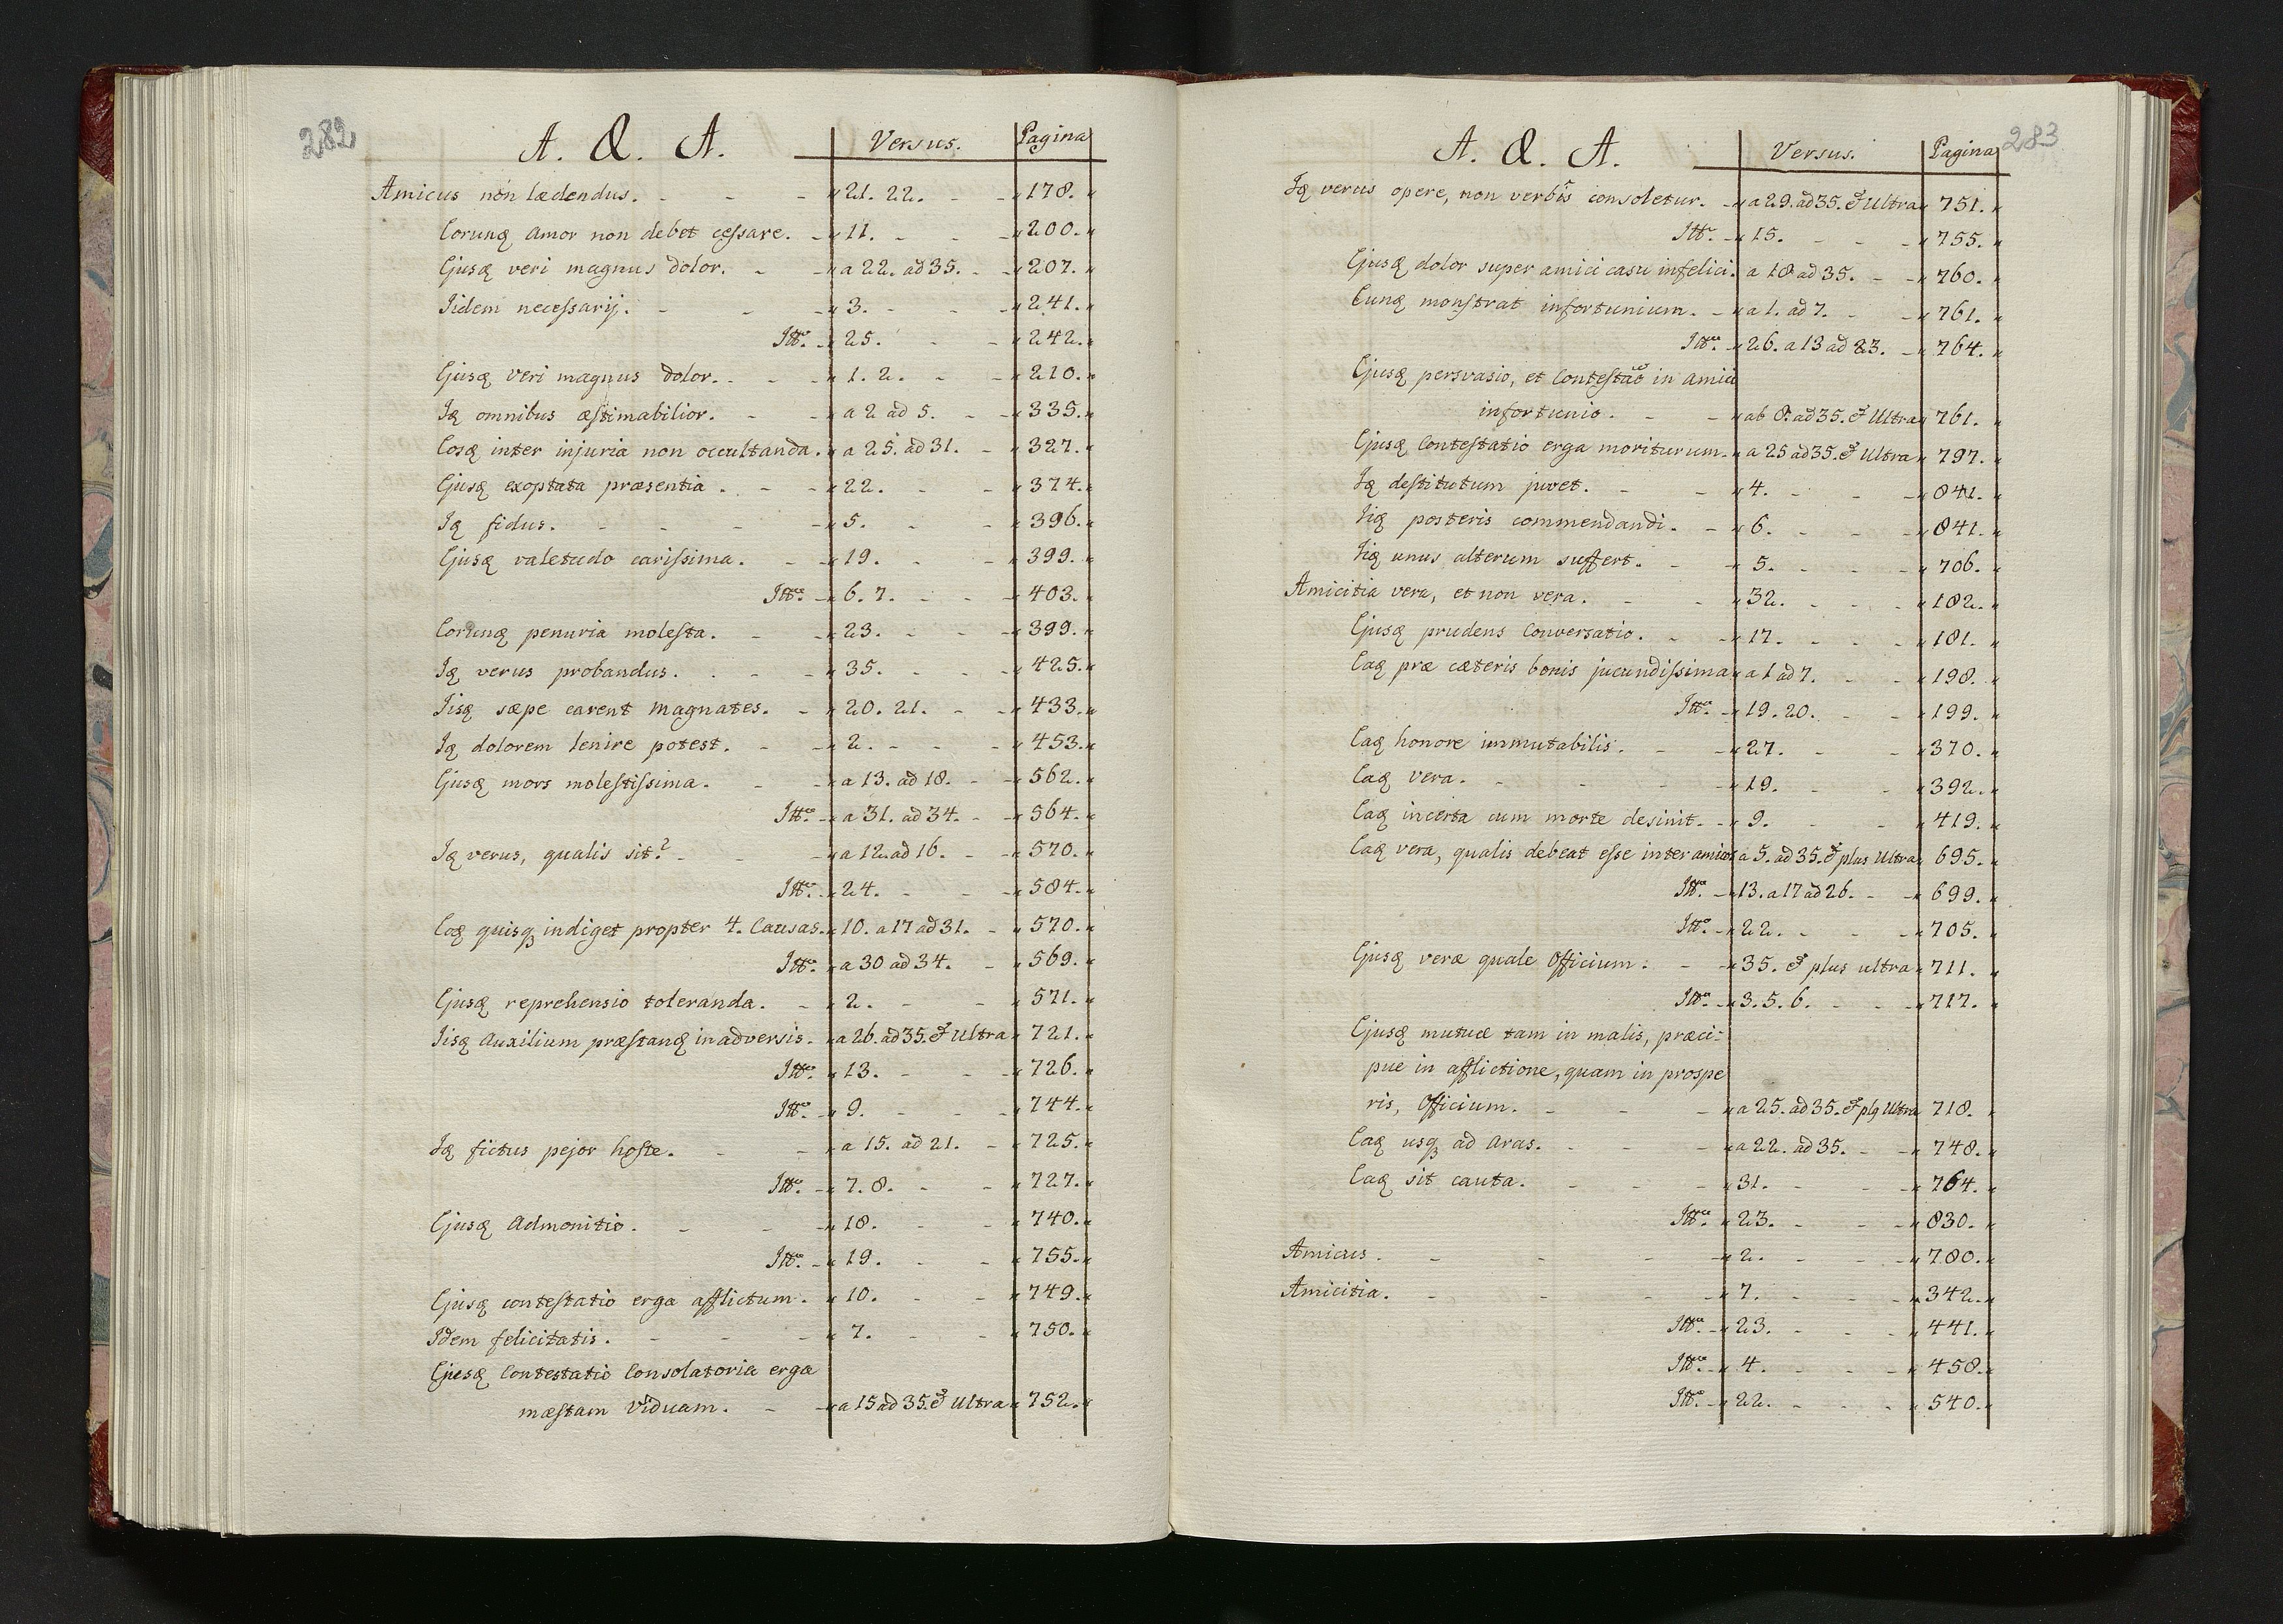 282
A. & A. Versus. Pagina
Amicus non lædendus. - - - " 21. 22. - - " 178. "
Eorunq Amor non debet cessare. - " 11. - - " 200. "
Ejusq veri magnus dolor. - - " a 22. ad 35. - " 207. "
Iidem necessarij. - - - " 3. - - " 241. "
Itto. - " 25. - - " 242. "
Ejusq veri magnus dolor. - - " 1. 2. - - " 210. "
Iq omnibus æstimabilior. - - " a 2 ad 5. - - " 335. "
Eosq inter injuria non occultanda. " a 25. ad 31. - " 327. "
Ejusq exoptata præsentia. - - " 22. - - " 374. "
Iq fidus. - - - - " 5. - - " 396. "
Ejusq valetudo carissima. - - " 19. - - " 399. "
Itto. - " 6. 7. - - " 403. "
Eorunq penuria molesta. - - " 23. - - " 399. "
Iq verus probandus. - - - " 35. - - " 425. "
Iisq sæpe carent Magnates. - " 20. 21. - - " 433. "
Iq dolorem lenire potest. - - " 2. - - - " 453. "
Ejusq mors molestissima. - - " a 13. ad 18. - " 562. "
Itto. - " a 31. ad 34. - " 564. "
Iq verus, qualis sit? - - - " a 12 ad 16. - " 570. "
Itto. - " 24. - - " 584. "
Eoq quisq indiget propter 4. Causas. " 10. a 17 ad 31. - " 570. "
Itto. " a 30 ad 34. - " 569. "
Ejusq reprehensio toleranda. - " 2. - - " 571. "
Iisq Auxilium præstanq in adversis. - " a 26. ad 35. & Ultra " 721. "
Itto. " 13. - - " 726. "
Itto. - " 9. - - " 744. "
Iq fictus pejor hoste. - - " a 15. ad 21. - " 725. "
Itto. - " 7. 8. - - " 727. "
Ejusq Admonitio. - - - " 18. - - " 740. "
Itto. - " 19. - - " 755. "
Ejusq contestatio erga afflictum. - " 10. - - " 749. "
Idem felicitatis. - - - " 7. - - " 750. "
Ejusq Contestatio Consolatoria erga
mæstam Viduam. - - " a 15 ad 35. & Ultra " 752. "
283
A. & A. Versus. Pagina
Iq verus opere, non verbis consoletur. - " a 29. ad 35. & Ultra " 751. "
Itto. - " 15. - - - " 755. "
Ejusq dolor super amici casu infelici. " a 18 ad 35. - - " 760. "
Eunq monstrat infortunium. - " a 1. ad 7. - - " 761. "
Itto. - " 26. a 13 ad 23. - " 764. "
Ejusq persvasio, et Contestao in amici
infortunio. - - " ab 8. ad 35. & Ultra " 761. "
Ejusq Contestatio erga moriturum. " a 25 ad 35. & Ultra " 797. "
Iq destitutum juvet. - - " 4. - - - " 841. "
Iiq posteris commendandi. - " 6. - - - " 841. "
Iiq unus alterum suffert. - - " 5. - - - " 706. "
Amicitia vera, et non vera. - - " 32. - - - " 182. "
Ejusq prudens Conversatio. - - " 17. - - - " 181. "
Eaq præ cæteris bonis jucundissima " a 1 ad 7. - - " 198. "
Itto. - " 19. 20. - - " 199. "
Eaq honore immutabilis. - - " 27. - - " 370. "
Eaq vera. - - - - " 19. - - " 392. "
Eaq incerta cum morte desinit. - " 9. - - " 419. "
Eaq vera, qualis debeat esse inter amicos " a 5. ad 35. & plus Ultra " 695. "
Itto. - " 13. a 17 ad 26. - - " 699. "
Itto. - " 22. - - - " 705. "
Ejusq veræ quale Officium. - - " 35. & plus ultra " 711. "
Itto. - " 3. 5. 6. - - " 717. "
Ejusq mutuæ tam in malis, præci=
pue in afflictione, quam in prospe
ris, Officium. - - - " a 25. ad 35. & plq Ultra 718. "
Eaq usq ad Aras. - - - " a 22. ad 35. - - " 748. "
Eaq sit cauta. - - - " 31. - - - " 764. "
Itto. - " 23. - - - " 830. "
Amicus. - - - - " 2. - - - " 780. "
Amicitia. - - - - " 7. - - - " 342. "
Itto. - " 23. - - - " 441. "
Itto. - " 4. - - - " 458. "
Itto. - " 22. - - - " 540. "